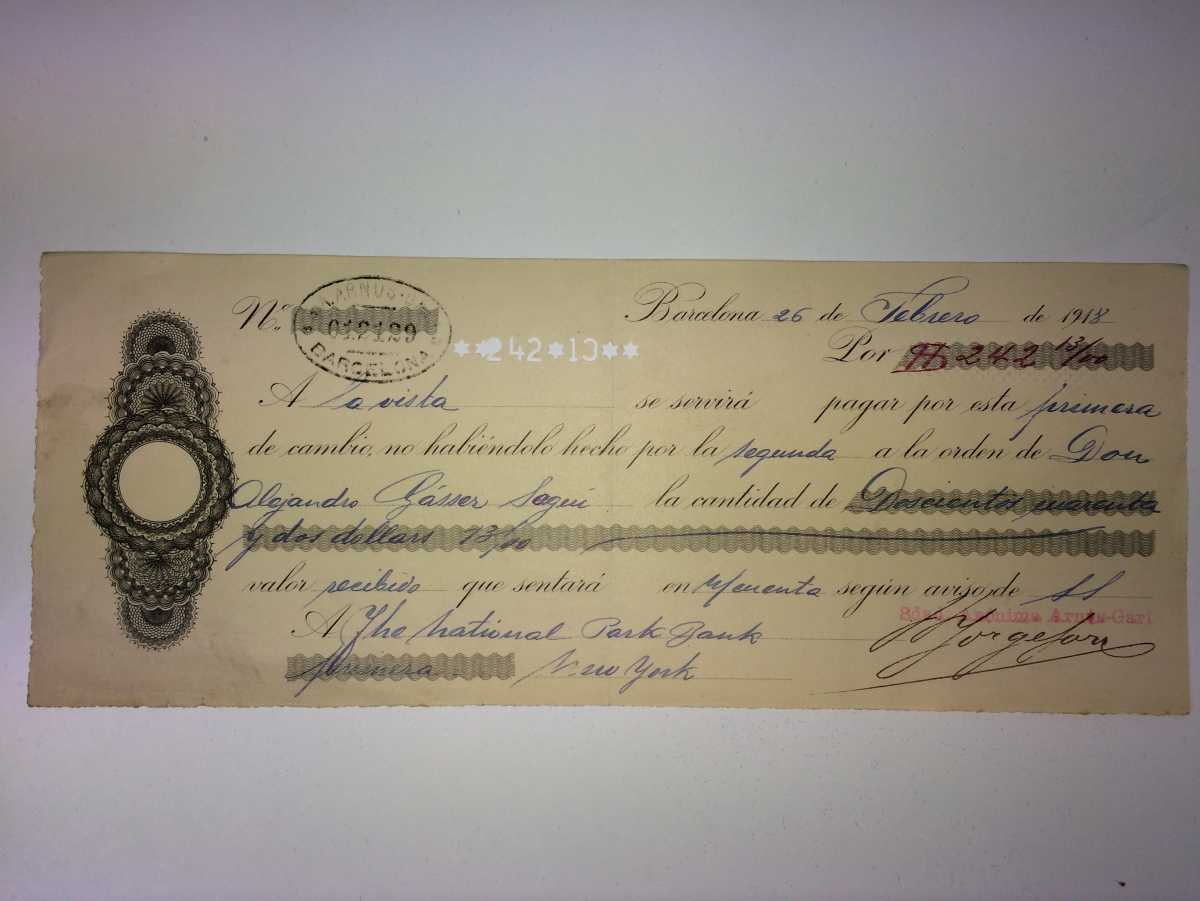 Nº
ARNUS-
BARCELONA
**242*13**
Barcelona 26 de Febrero de 1918
Por $ 242 13/00
A la vista se servirá pagar por esta primera
de cambio, no habiéndolo hecho por la segunda a la orden de Don
Alejandro Gásser Seguí la cantidad de Doscientos cuarenta
y dos dollars 13/00
valor recibido que sentará en cuenta según aviso de SS
Sdad. Anónima Arnús-Garí
A The National Park Bank
primera New York